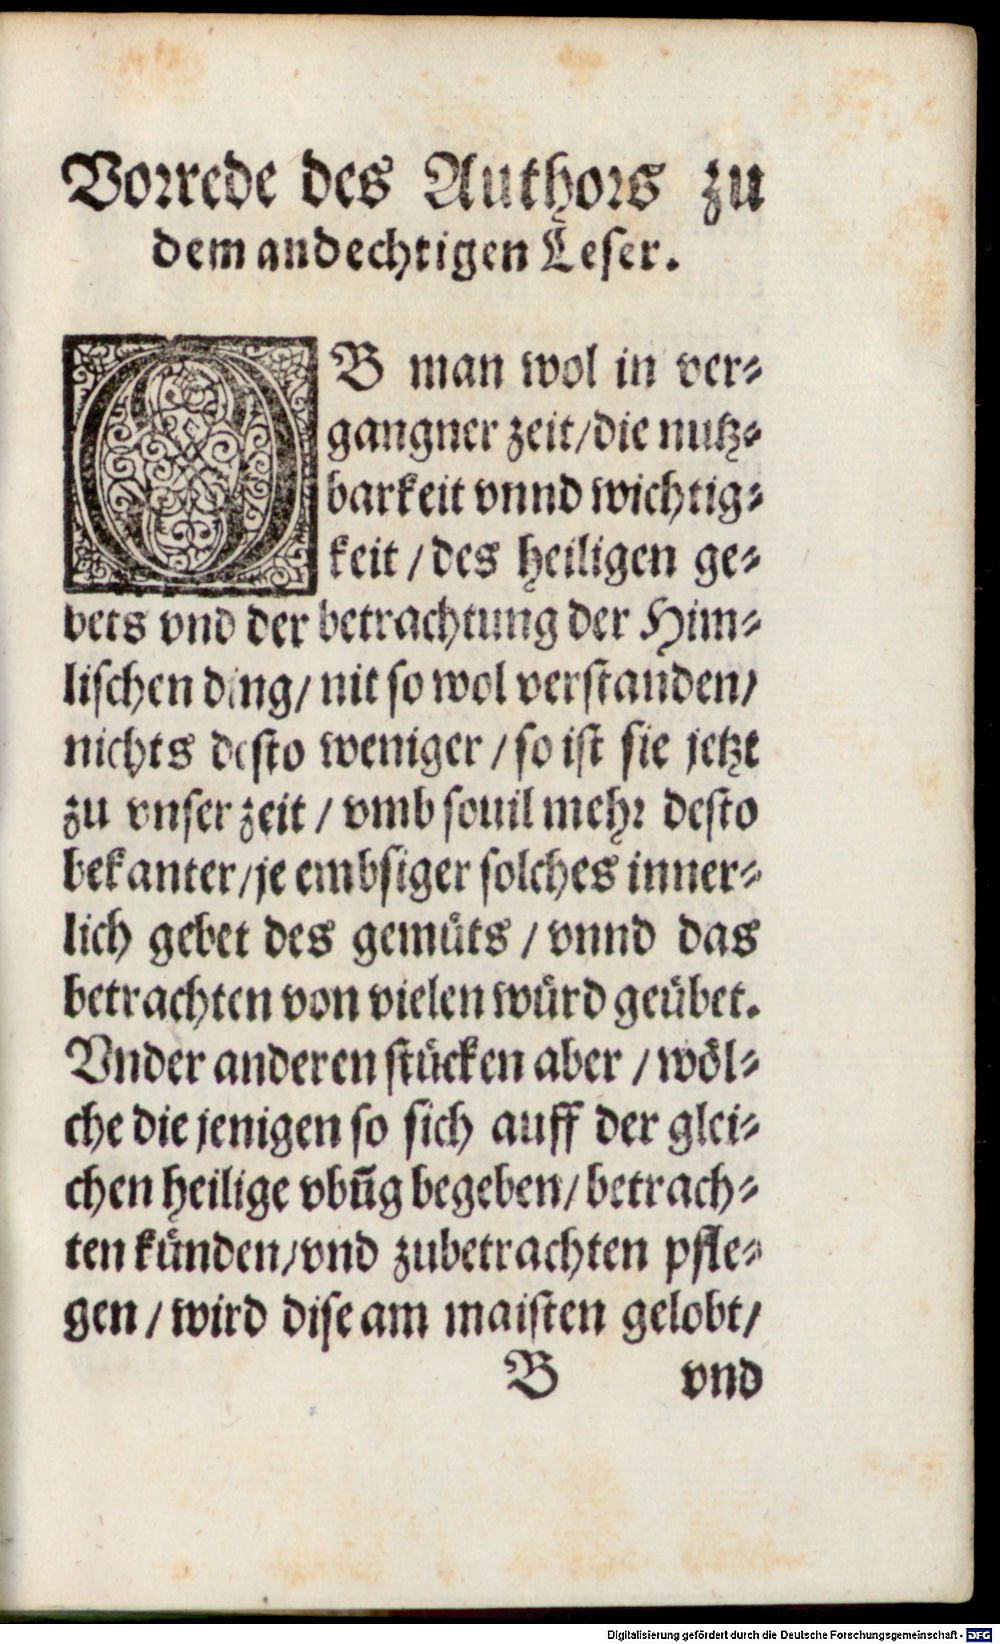 Vorrede des Authors zu
dem andechtigen Leser.
OB man wol in ver⸗
gangner zeit/die nutz⸗
barkeit vnnd wichtig⸗
keit / des heiligen ge⸗
bets vnd der betrachtung der Him⸗
lischen ding/ nit so wol verstanden/
nichts desto weniger / so ist sie jetzt
zu vnser zeit / vmb souil mehr desto
bekanter/je embsiger solches inner⸗
lich gebet des gemüts / vnnd das
betrachten von vielen würd geübet.
Vnder anderen stücken aber / wöl⸗
che die jenigen so sich auff der glei⸗
chen heilige vbūg begeben/ betrach⸗
ten künden/vnd zubetrachten pfle⸗
gen / wird dise am maisten gelobt/
B vnd
Digitalisierung gefördert durch die Deutsche Forschungsgemeinschaft - DFG